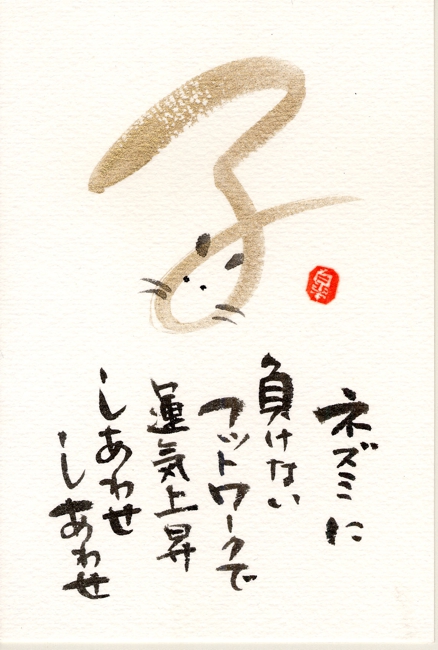 子
ネズミに
負けない
フットワークで
運気上昇
しあわせ
しあわせ